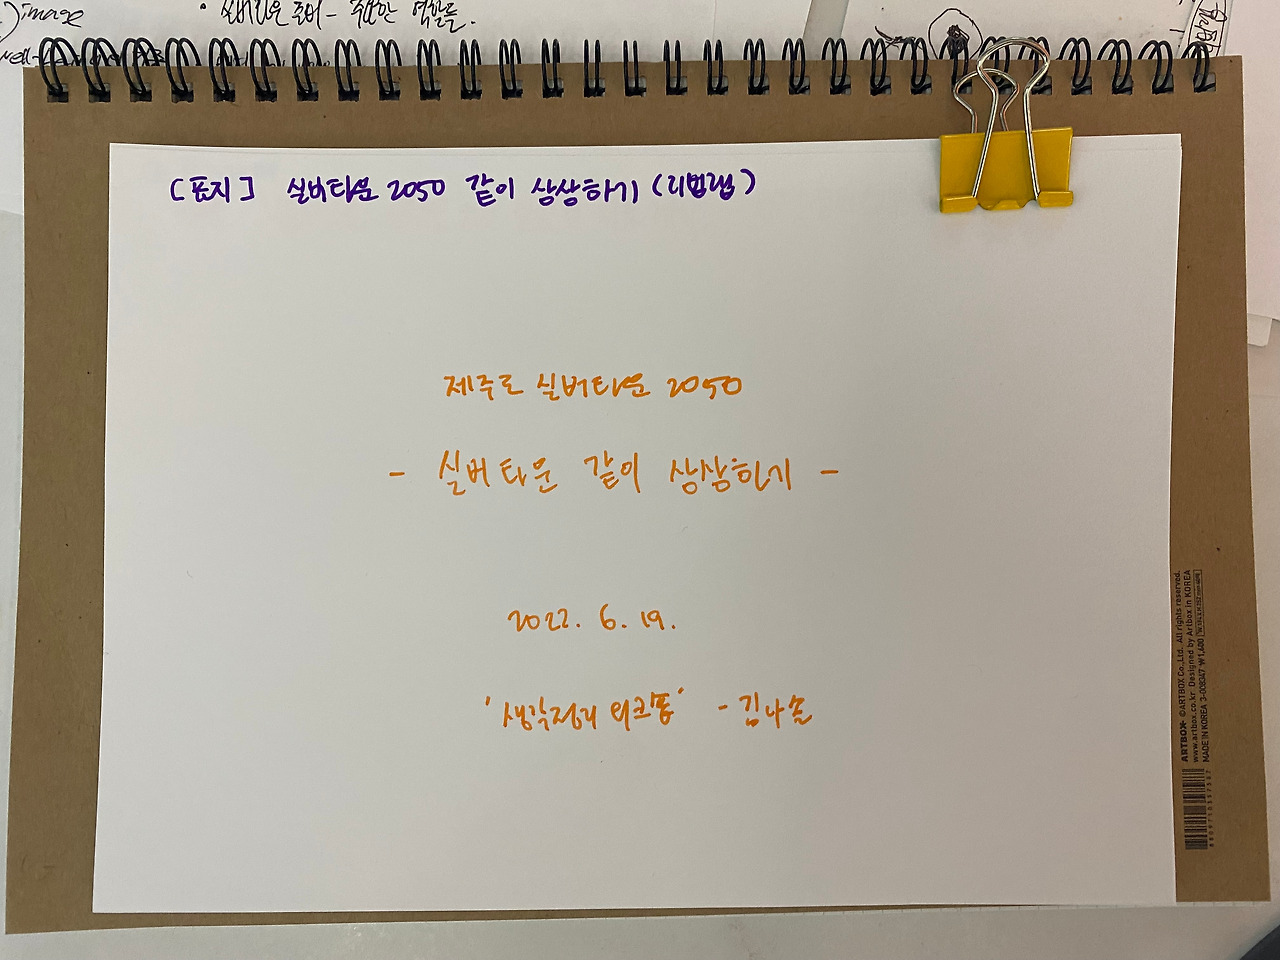 image
[표지] 실버타운 2050 같이 상상하기 (리빙랩)
제주로 실버타운 2050
- 실버타운 같이 상상하기 -
2022. 6. 19.
'생각정리 워크숍' - 김나솔
ARTBOX ©ARTBOX Co.,Ltd. All rights reserved.
www.artbox.co.kr Designed by Artbox in KOREA
MADE IN KOREA 3-008347 ₩1,400